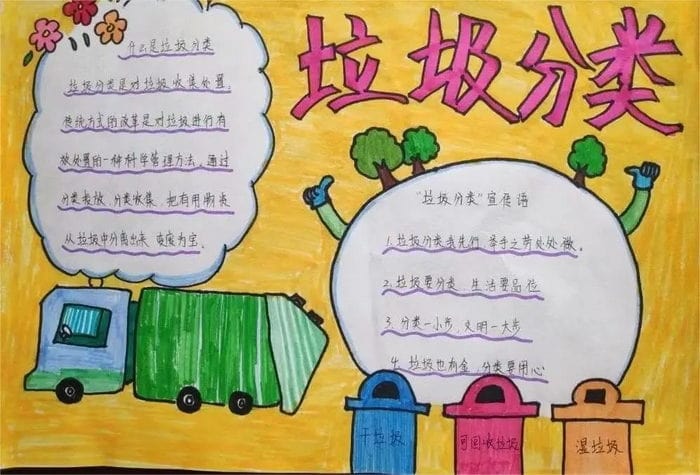 垃圾分类
什么是垃圾分类
垃圾分类是对垃圾收集处置
传统方式的改革是对垃圾进行有
效处置的一种科学管理方法，通过
分类投放、分类收集，把有用物资
从垃圾中分离出来 变废为宝。
“垃圾分类”宣传语
1.垃圾分类我先行 举手之劳处处做。
2.垃圾要分类 生活要品位
3.分类一小步，文明一大步
4.垃圾也有金，分类要用心
干垃圾
可回收垃圾
湿垃圾